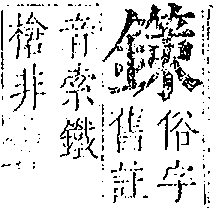 俗字
舊註
音索鐵
槍非